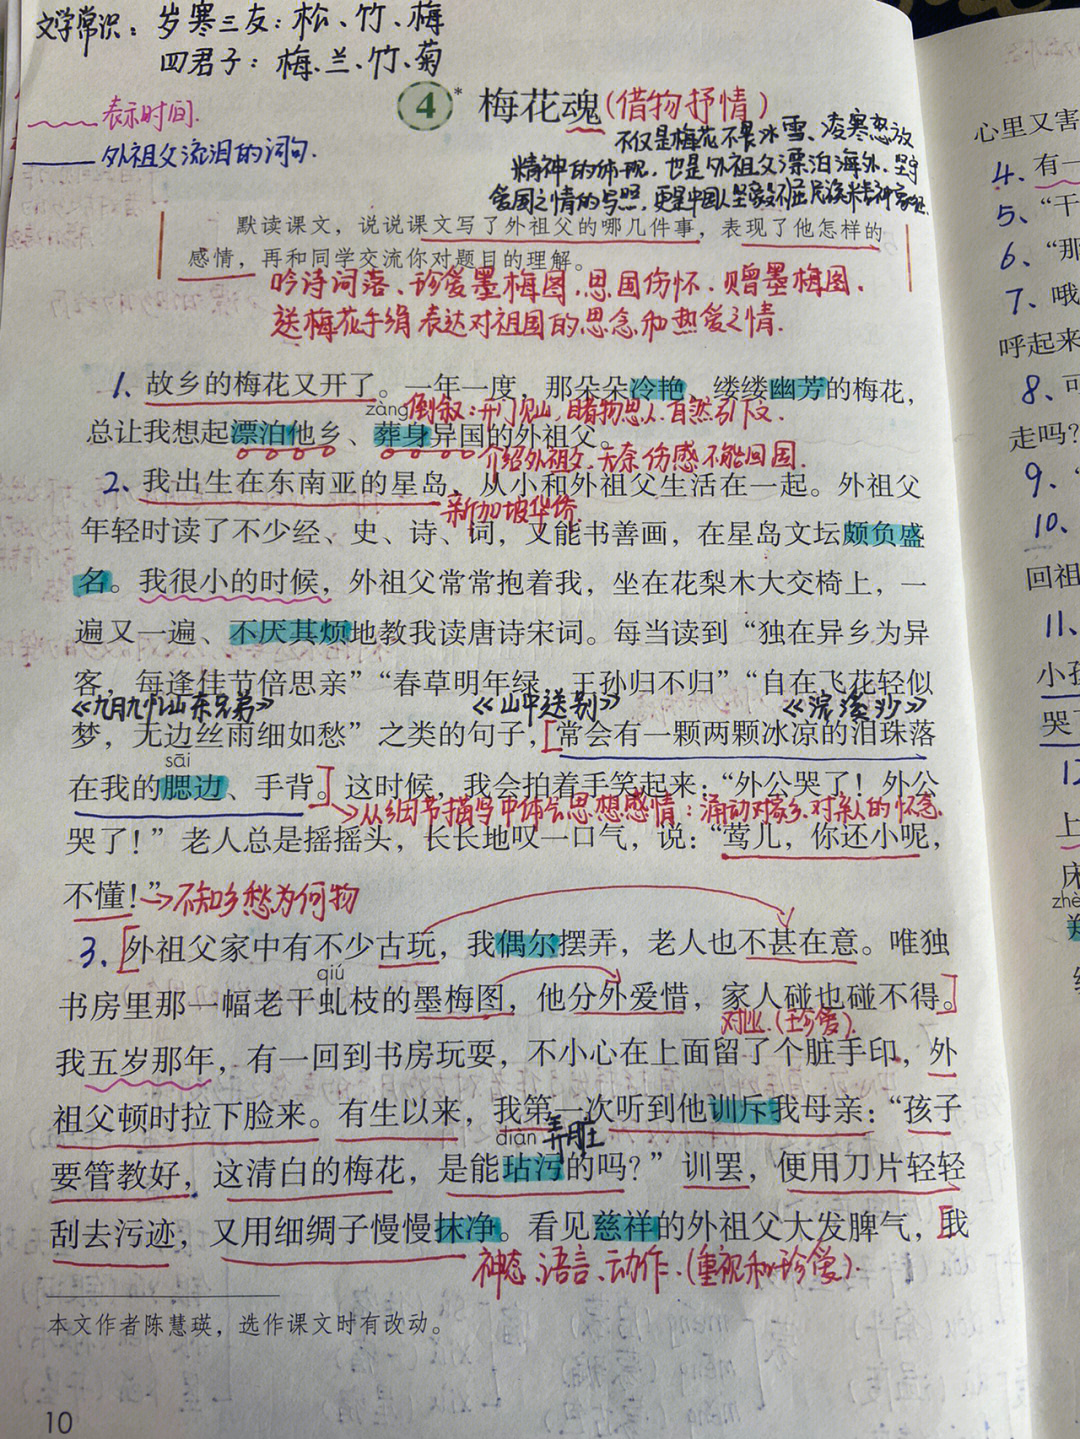 文学常识：岁寒三友：松、竹、梅
四君子：梅、兰、竹、菊
表示时间.
外祖父流泪的词句.
4* 梅花魂（借物抒情）
不仅是梅花不畏冰雪、凌寒怒放
精神的体现，也是外祖父漂泊海外、坚守
爱国之情的写照，更是中国人坚毅不屈民族精神象征.
默读课文，说说课文写了外祖父的哪几件事，表现了他怎样的
感情，再和同学交流你对题目的理解。
吟诗词落、珍爱墨梅图，思国伤怀、赠墨梅图.
送梅花手绢 表达对祖国的思念和热爱之情.
1、故乡的梅花又开了。一年一度，那朵朵冷艳、缕缕幽芳的梅花，
zàng 倒叙：开门见山，睹物思人.自然引下文.
总让我想起漂泊他乡、葬身异国的外祖父。
介绍外祖父.无奈伤感不能回国.
2、我出生在东南亚的星岛，从小和外祖父生活在一起。外祖父
新加坡华侨.
年轻时读了不少经、史、诗、词，又能书善画，在星岛文坛颇负盛
名。我很小的时候，外祖父常常抱着我，坐在花梨木大交椅上，一
遍又一遍、不厌其烦地教我读唐诗宋词。每当读到“独在异乡为异
客，每逢佳节倍思亲”“春草明年绿，王孙归不归”“自在飞花轻似
《九月九忆山东兄弟》 《山中送别》 《浣溪沙》
梦，无边丝雨细如愁”之类的句子，[常会有一颗两颗冰凉的泪珠落
sāi
在我的腮边、手背。]这时候，我会拍着手笑起来：“外公哭了！外公
→从细节描写中体会思想感情：涌动对家乡.对亲人的怀念.
哭了！”老人总是摇摇头，长长地叹一口气，说：“莺儿，你还小呢，
不懂！”→不知乡愁为何物
3、[外祖父家中有不少古玩，我偶尔摆弄，老人也不甚在意。唯独
qiú
书房里那一幅老干虬枝的墨梅图，他分外爱惜，家人碰也碰不得。]
对比.（珍爱）.
我五岁那年，有一回到书房玩耍，不小心在上面留了个脏手印，外
祖父顿时拉下脸来。有生以来，我第一次听到他训斥我母亲：“孩子
diàn 弄脏
要管教好，这清白的梅花，是能玷污的吗？”训罢，便用刀片轻轻
刮去污迹，又用细绸子慢慢抹净。看见慈祥的外祖父大发脾气，[我
神态、语言、动作.（重视和珍爱）.
本文作者陈慧瑛，选作课文时有改动。
10
心里又害
4、有一
5、“干
6、“那
7、哦
呼起来
8、可
走吗？
9、“
10、
回祖
11、
小孩
哭了
12
上
床
zhè